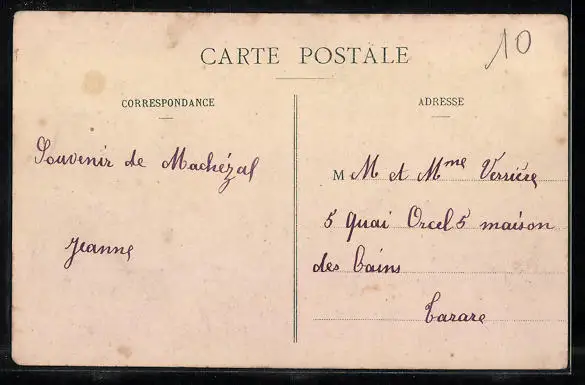 10
CARTE POSTALE
CORRESPONDANCE
Souvenir de Machézal
Jeanne
ADRESSE
M M et Mme Verrière
5 quai Orcel 5 maison
des bains
Tarare